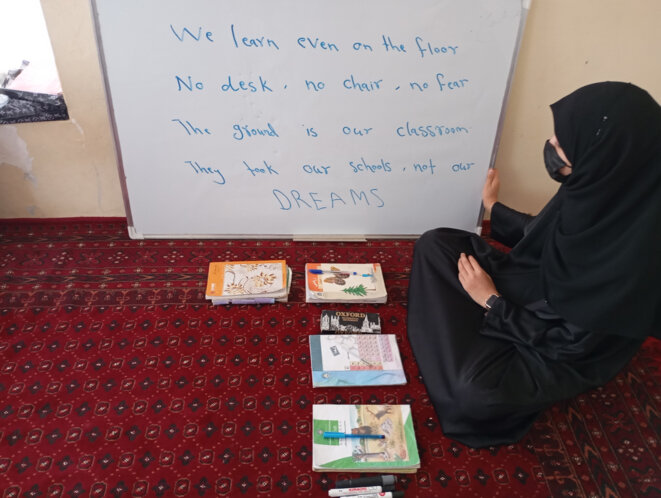 We learn even on the floor
No desk, no chair, no fear
The ground is our classroom
They took our schools, not our
DREAMS
OXFORD